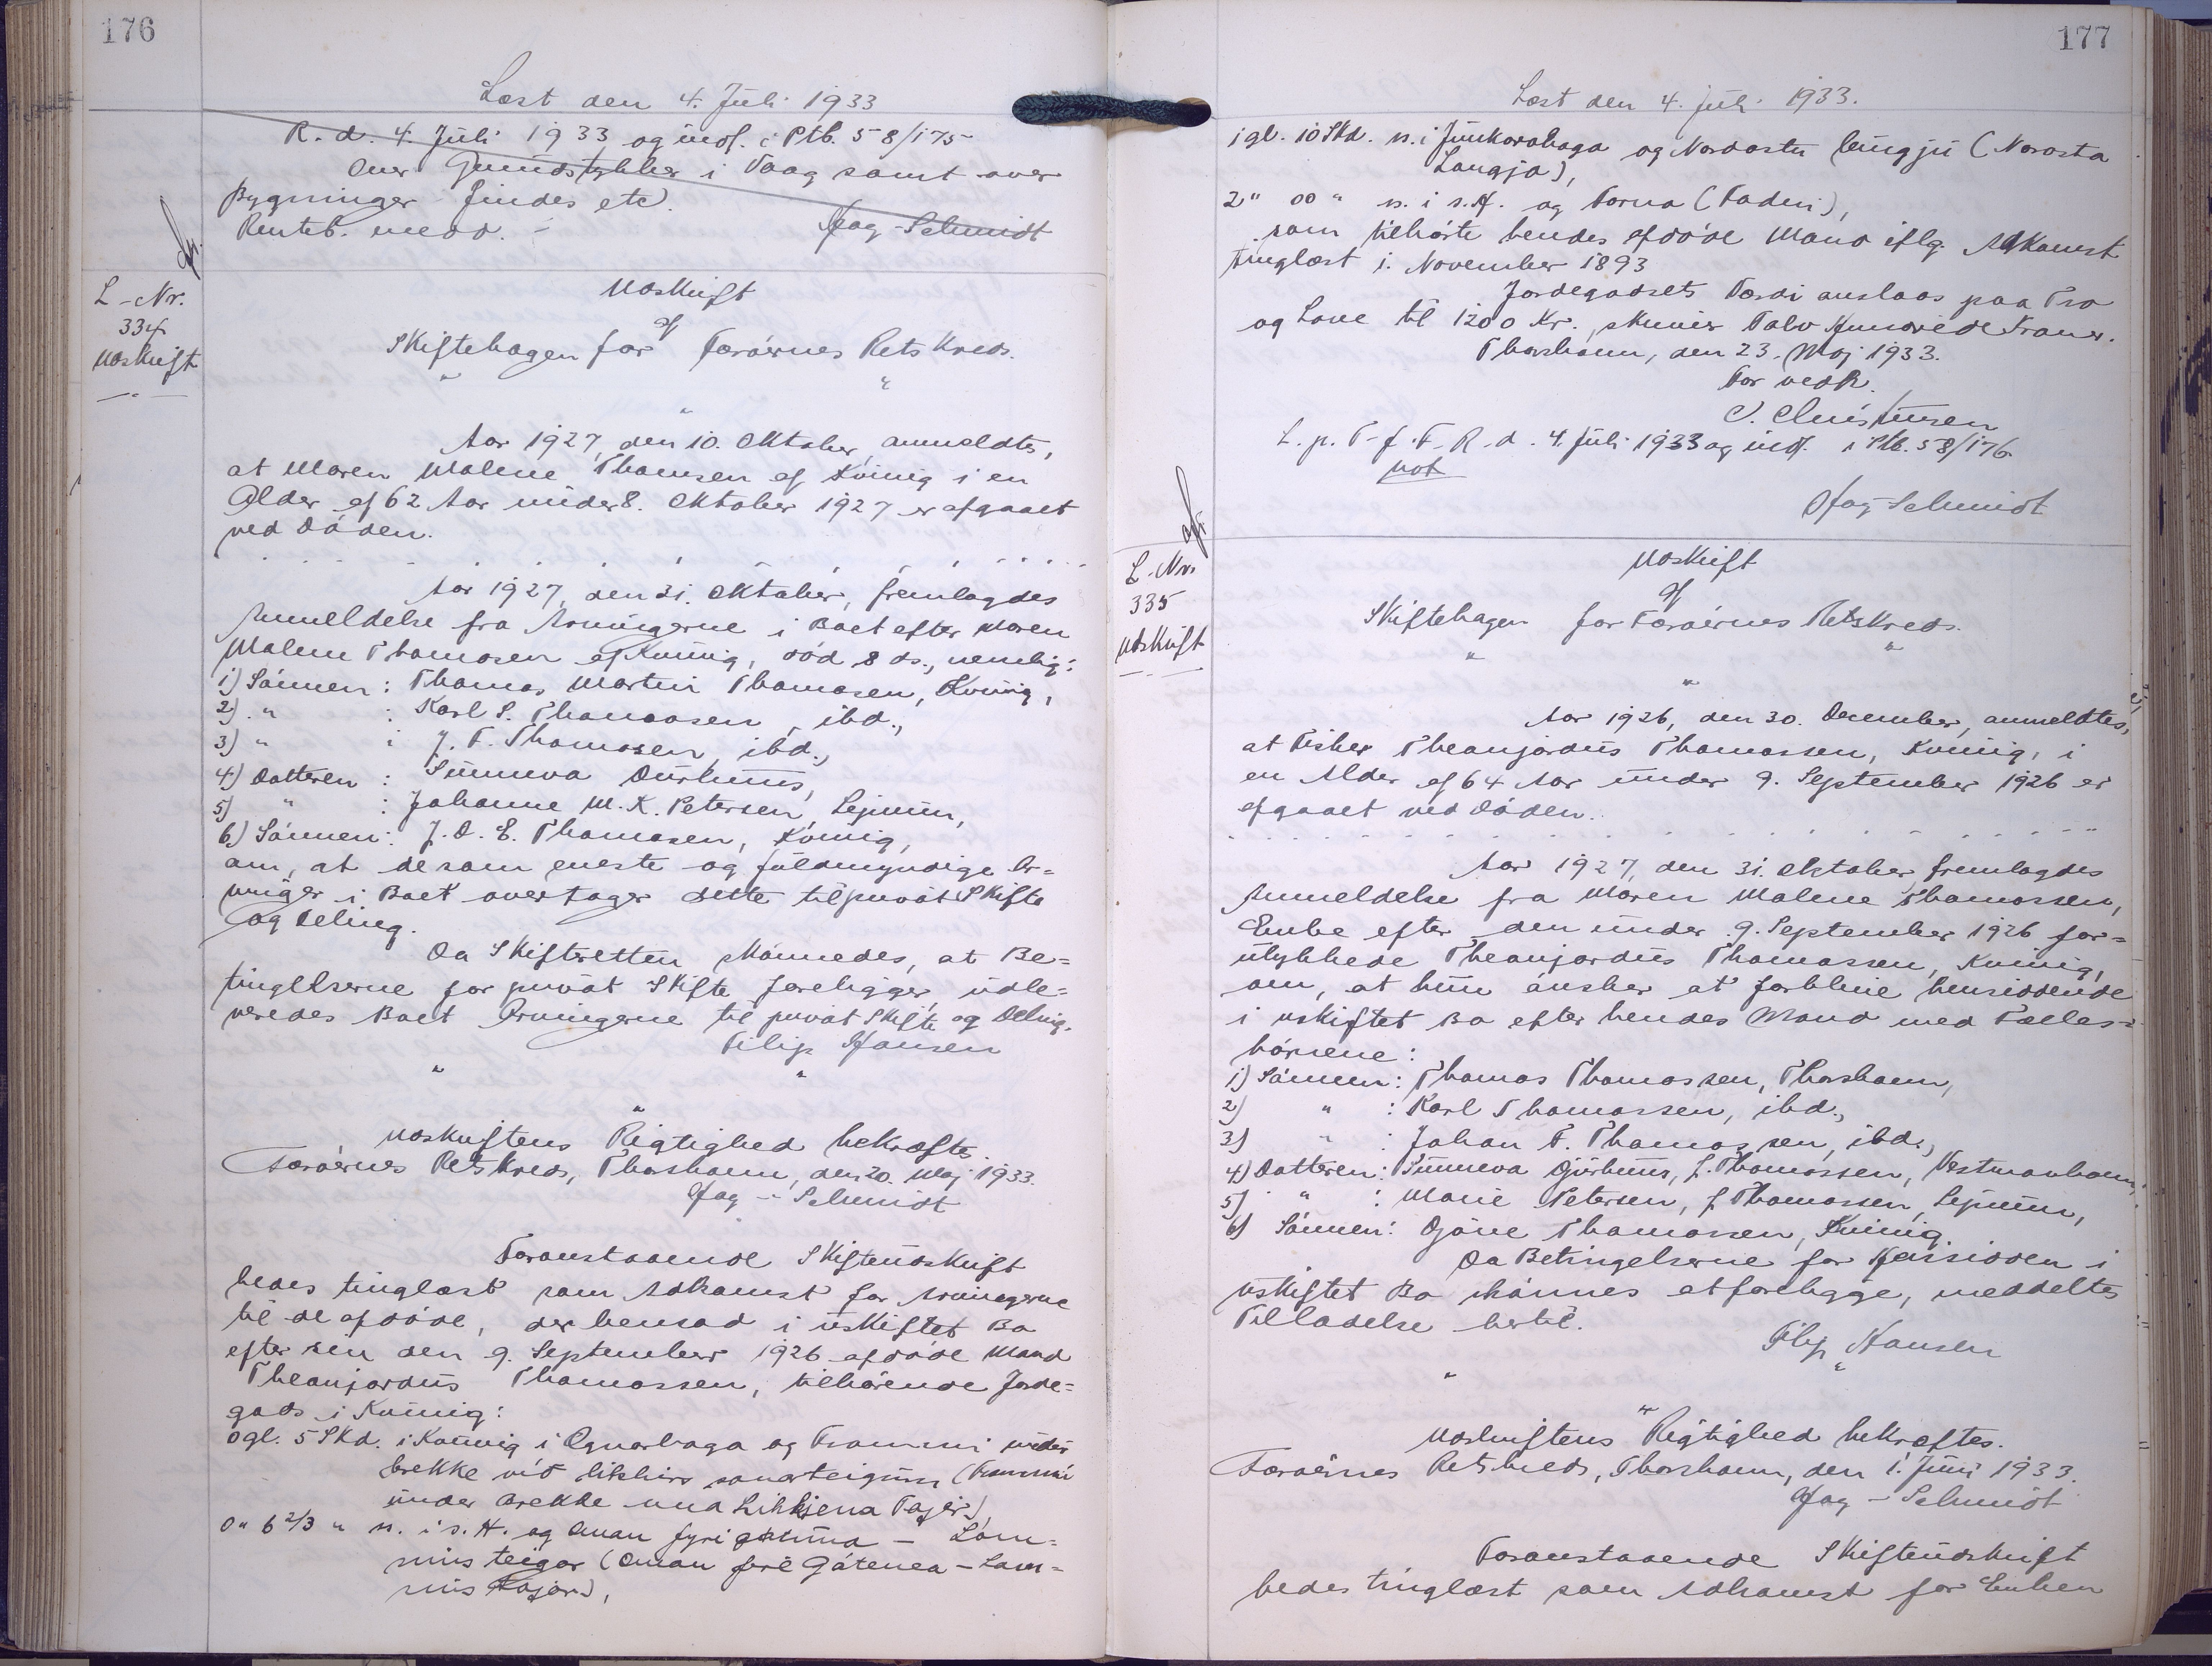 176
Læst den 4. Juli 1933
R. d. 4. Juli 1933 og indf. i Ptb. 58/175
over Grundstykker i Vaag samt over
Bygninger findes etc.
Renteb. medd. -
Hag-Schmidt
L-Nr.
334
Udskrift
Udskrift
af
Skiftebogen for Færøernes Retskreds.
" "
"
Aar 1927, den 10. Oktober, anmeldtes,
at Maren Malene Thomsen af Kvivig i en
Alder af 62 Aar under 8. Oktober 1927 er afgaaet
ved Døden.
Aar 1927, den 31. Oktober, fremlagdes
Anmeldelse fra Arvingerne i Boet efter Maren
Malene Thomasen af Kvivig, død 8 ds., nemlig:
1) Sønnen: Thomas Martin Thomasen, Kvivig,
2) " : Karl S. Thomasen, ibd.,
3) " : J. F. Thomasen, ibd.,
4) Datteren : Sunneva Durhuus,
5) " : Johanne M. K. Petersen, Lejnum,
6) Sønnen: J. D. E. Thomasen, Kvivig,
om, at de som eneste og fuldmyndige Ar=
vinger i Boet overtager dette til privat Skifte
og Deling.
Da Skifteretten skønnedes, at Be=
tingelserne for privat Skifte foreligger, udle=
veredes Boet Arvingerne til privat Skifte og Deling.
Filip Hansen
" "
"
Udskriftens Rigtighed bekræftes.
Færøernes Retskreds, Thorshavn, den 20. Maj 1933.
Hag - Schmidt
Foranstaaende Skifteudskrift
bedes tinglæst som Adkomst for Arvingerne
til de afdøde, der hensad i uskiftet Bo
efter sin den 9. September 1926 afdøde Mand
Theanjardus Thomassen, tilhørende Jorde=
gods i Kvivig:
0 gl. 5 Skd. i Kvivig i Ognarhaga og Frammi undir
brekke við likkirs sonarteigum (Frammi
under Brekke una Likkjena Tajir)
0 " 6 2/3 " n. i s. H. og Oman fyri gøtuna - Lam=
mis teigar (Oman firi Gátenea - Lam=
mis Tajar),
177
Læst den 4. Juli 1933.
1 gl. 10 Skd. n. i Junkarahaga og Nordastu lungju (Norasta
Langja),
2 " 00 " n. i s. H. og Forna (Fadni),
som tilhørte hendes afdøde Mand iflg. Adkomst
tinglæst i. November 1893
Jordegodsets Værdi anslaas paa Tro
og Love til 1200 Kr., skriver Tolv Hundrede Kroner.
Thorshavn, den 23. Maj 1933.
For vedk.
C. Christiansen
L. p. F. f. F. R. d. 4. Juli 1933 og indf. i Ptb. 58/176
not
Hag-Schmidt
L-Nr.
335
Udskrift
Udskrift
af
Skiftebogen for Færøernes Retskreds.
" "
"
Aar 1926, den 30. December, anmeldtes,
at Fisker Theanjardus Thomassen, Kvivig, i
en Alder af 64 Aar under 9. September 1926 er
afgaaet ved Døden.
Aar 1927, den 31. Oktober fremlagdes
Anmeldelse fra Maren Malene Thomassen,
Enke efter den under 9. September 1926 for=
ulykkede Theanjardus Thomassen, Kvivig,
om, at hun ønsker at forblive hensiddende
i uskiftet Bo efter hendes Mand med Fælles=
børnene:
1) Sønnen: Thomas Thomassen, Thorshavn,
2) " : Karl Thomassen, ibd.,
3) " : Johan F. Thomassen, ibd.,
4) Datteren: Sunneva Djurhuus, f. Thomassen, Vestmanhavn,
5) " : Marie Petersen, f. Thomassen, Lejnum,
6) Sønnen: Djóne Thomassen, Kvivig
Da Betingelserne for Hensidden i
uskiftet Bo skønnes at foreligge, meddeltes
Tilladelse hertil.
Filip Hansen
" "
"
Udskriftens Rigtighed bekræftes.
Færøernes Retskreds, Thorshavn, den 1. Juni 1933.
Hag - Schmidt
Foranstaaende Skifteudskrift
bedes tinglæst som Adkomst for Enken